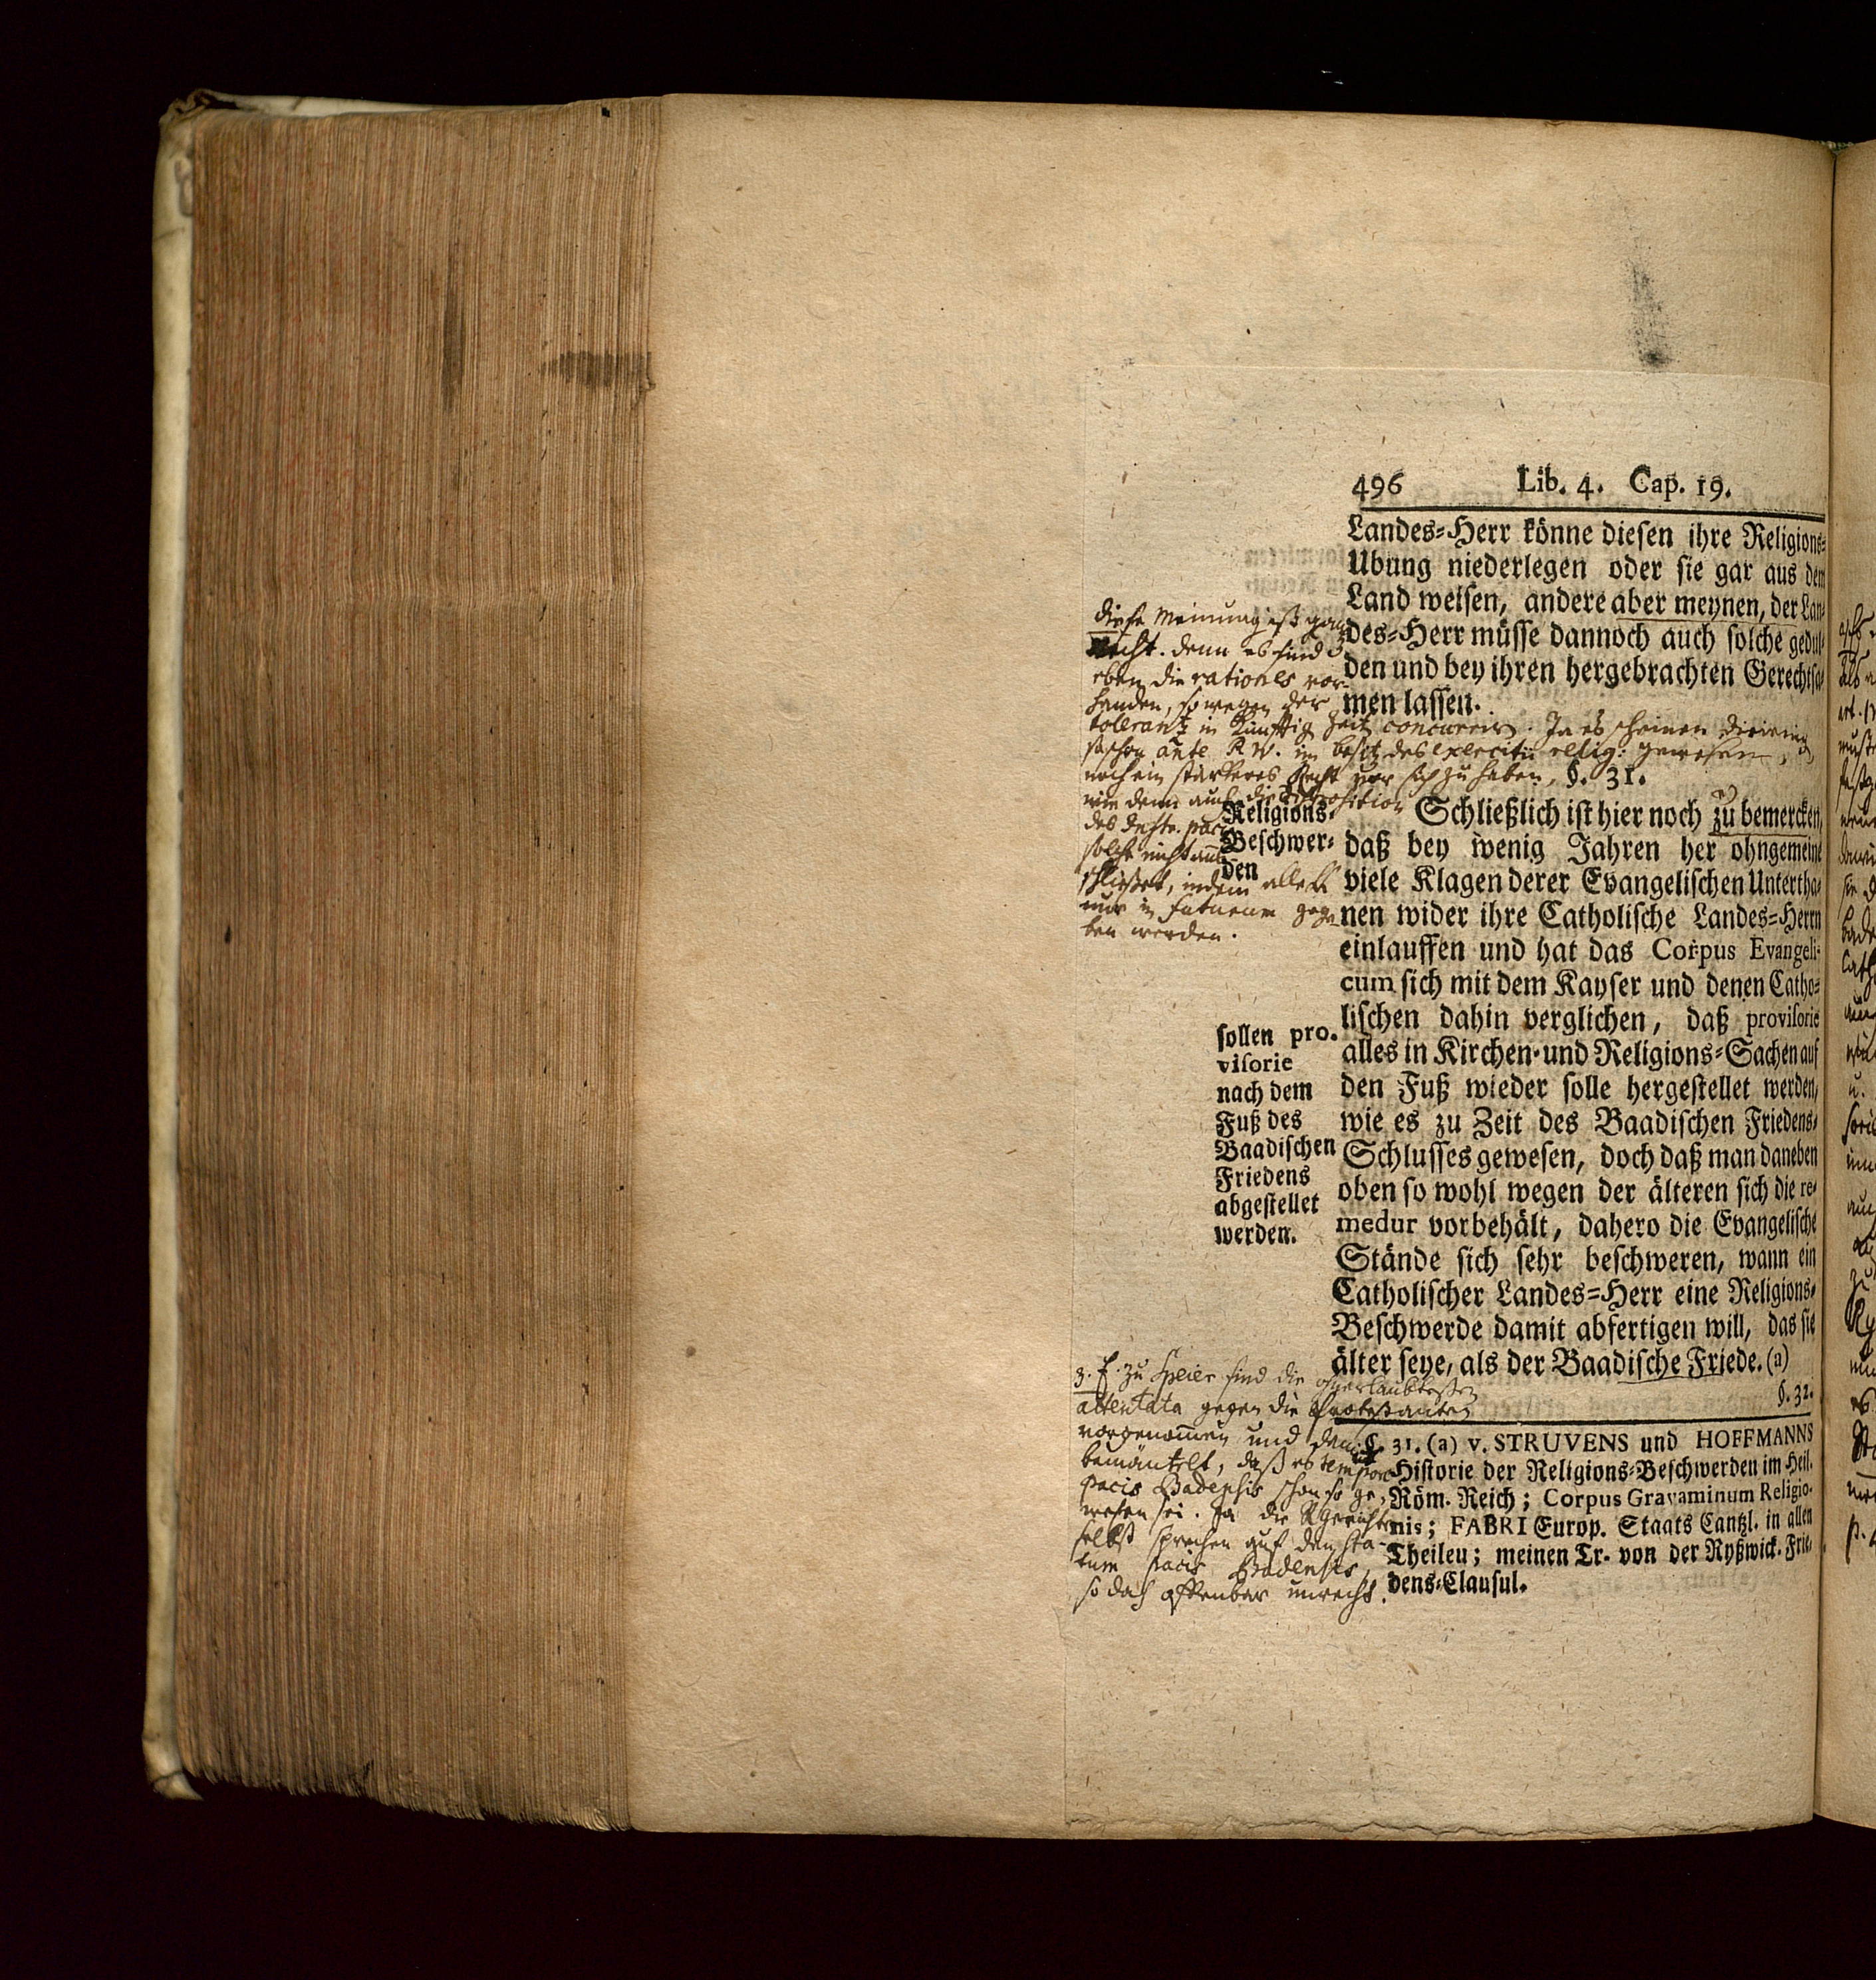 496 Lib. 4. Cap. 19.
Landes-Herr könne diesen ihre Religions-
Ubung niederlegen oder sie gar aus dem
Land weisen, andere aber meynen, der Lan-
des-Herr müsse dannoch auch solche gedul-
den und bey ihren hergebrachten Gerechtsa-
men lassen.
diese Meinung ist ganz
recht. denn es sind
eben die rationes vor-
handen, so wegen der
tolerantz in künfftig Zeit concurriren. Ja es scheinen diejenig
so schon ante P. W. im besitz des exercitii relig: gewesen,
noch ein stärkeres Recht vor sich zu haben,
wie denn auch die disposition
des Instr. pacis
solche nicht aus-
schließet, indem alle
nur in futurum gege-
ben werden.
§. 31.
Religions-
Beschwer-
den
Schließlich ist hier noch zu bemercken,
daß bey wenig Jahren her ohngemeine
viele Klagen derer Evangelischen Untertha-
nen wider ihre Catholische Landes-Herrn
einlauffen und hat das Corpus Evangeli-
cum sich mit dem Kayser und denen Catho-
lischen dahin verglichen, daß provisorie
alles in Kirchen- und Religions-Sachen auf
den Fuß wieder solle hergestellet werden,
wie es zu Zeit des Baadischen Friedens-
Schlusses gewesen, doch daß man daneben
oben so wohl wegen der älteren sich die re-
medur vorbehält, dahero die Evangelische
Stände sich sehr beschweren, wann ein
Catholischer Landes-Herr eine Religions-
Beschwerde damit abfertigen will, das sie
älter seye, als der Baadische Friede. (a)
sollen pro-
visorie
nach dem
Fuß des
Baadischen
Friedens
abgestellet
werden.
§. 32.
z. E. zu Speier sind die ohnerlaubtesten
attentata gegen die Protestanten
vorgenommen und damit
bemäntelt, daß es tempore
pacis Badensis schon so ge-
wesen sei. Ja die RGerichte
selbst sprechen auf den sta-
tum pacis Badensis,
so doch offenbar unrecht.
§. 31. (a) v. STRUVENS und HOFFMANNS
Historie der Religions-Beschwerden im Heil.
Röm. Reich; Corpus Gravaminum Religio-
nis; FABRI Europ. Staats Cantzl. in allen
Theileu; meinen Tr. von der Ryßwick. Frie-
dens-Clausul.